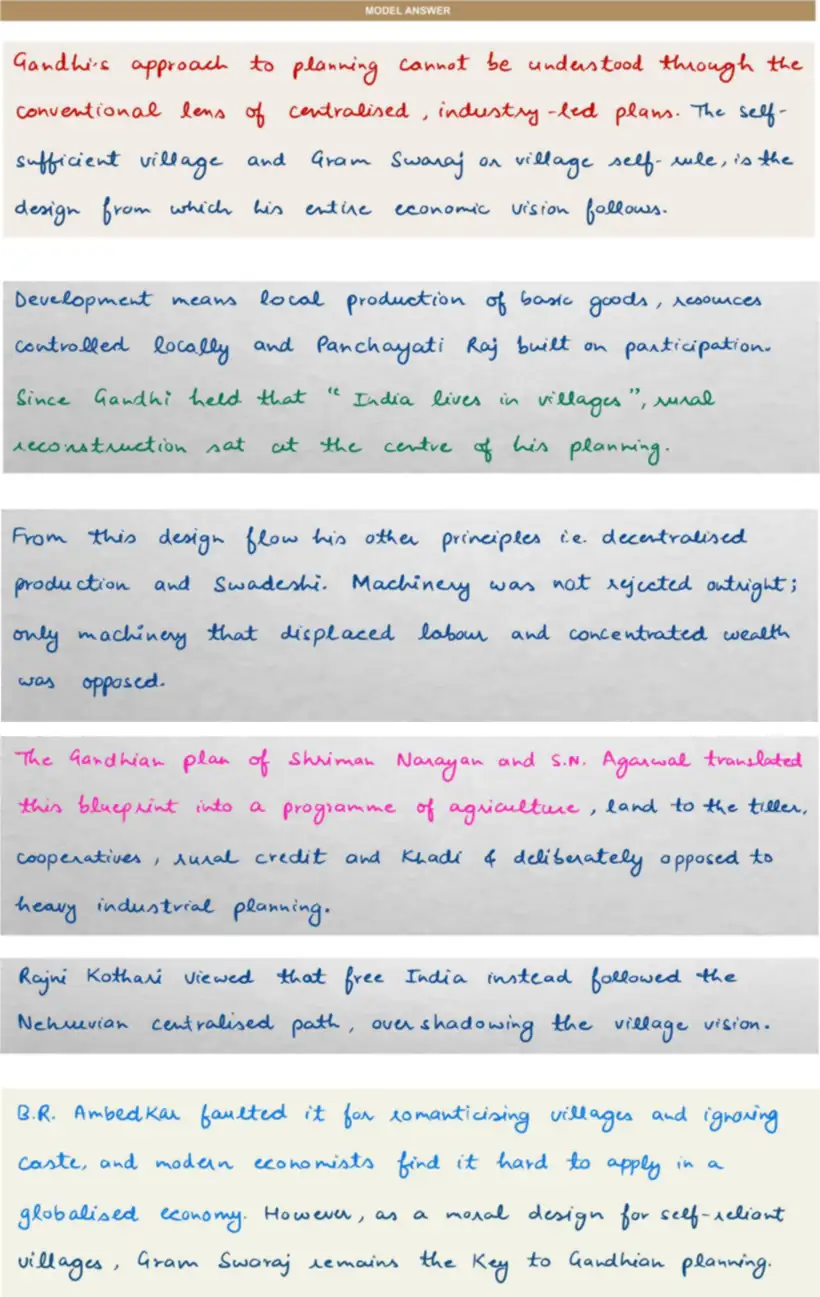 MODEL ANSWER
Gandhi's approach to planning cannot be understood through the
conventional lens of centralised, industry-led plans. The self-
sufficient village and Gram Swaraj or village self-rule, is the
design from which his entire economic vision follows.
Development means local production of basic goods, resources
controlled locally and Panchayati Raj built on participation.
Since Gandhi held that "India lives in villages", rural
reconstruction sat at the centre of his planning.
From this design flow his other principles i.e. decentralised
production and Swadeshi. Machinery was not rejected outright;
only machinery that displaced labour and concentrated wealth
was opposed.
The Gandhian plan of Shriman Narayan and S.N. Agarwal translated
this blueprint into a programme of agriculture, land to the tiller,
cooperatives, rural credit and Khadi & deliberately opposed to
heavy industrial planning.
Rajni Kothari viewed that free India instead followed the
Nehruvian centralised path, overshadowing the village vision.
B.R. Ambedkar faulted it for romanticising villages and ignoring
caste, and modern economists find it hard to apply in a
globalised economy. However, as a moral design for self-reliant
villages, Gram Swaraj remains the Key to Gandhian planning.